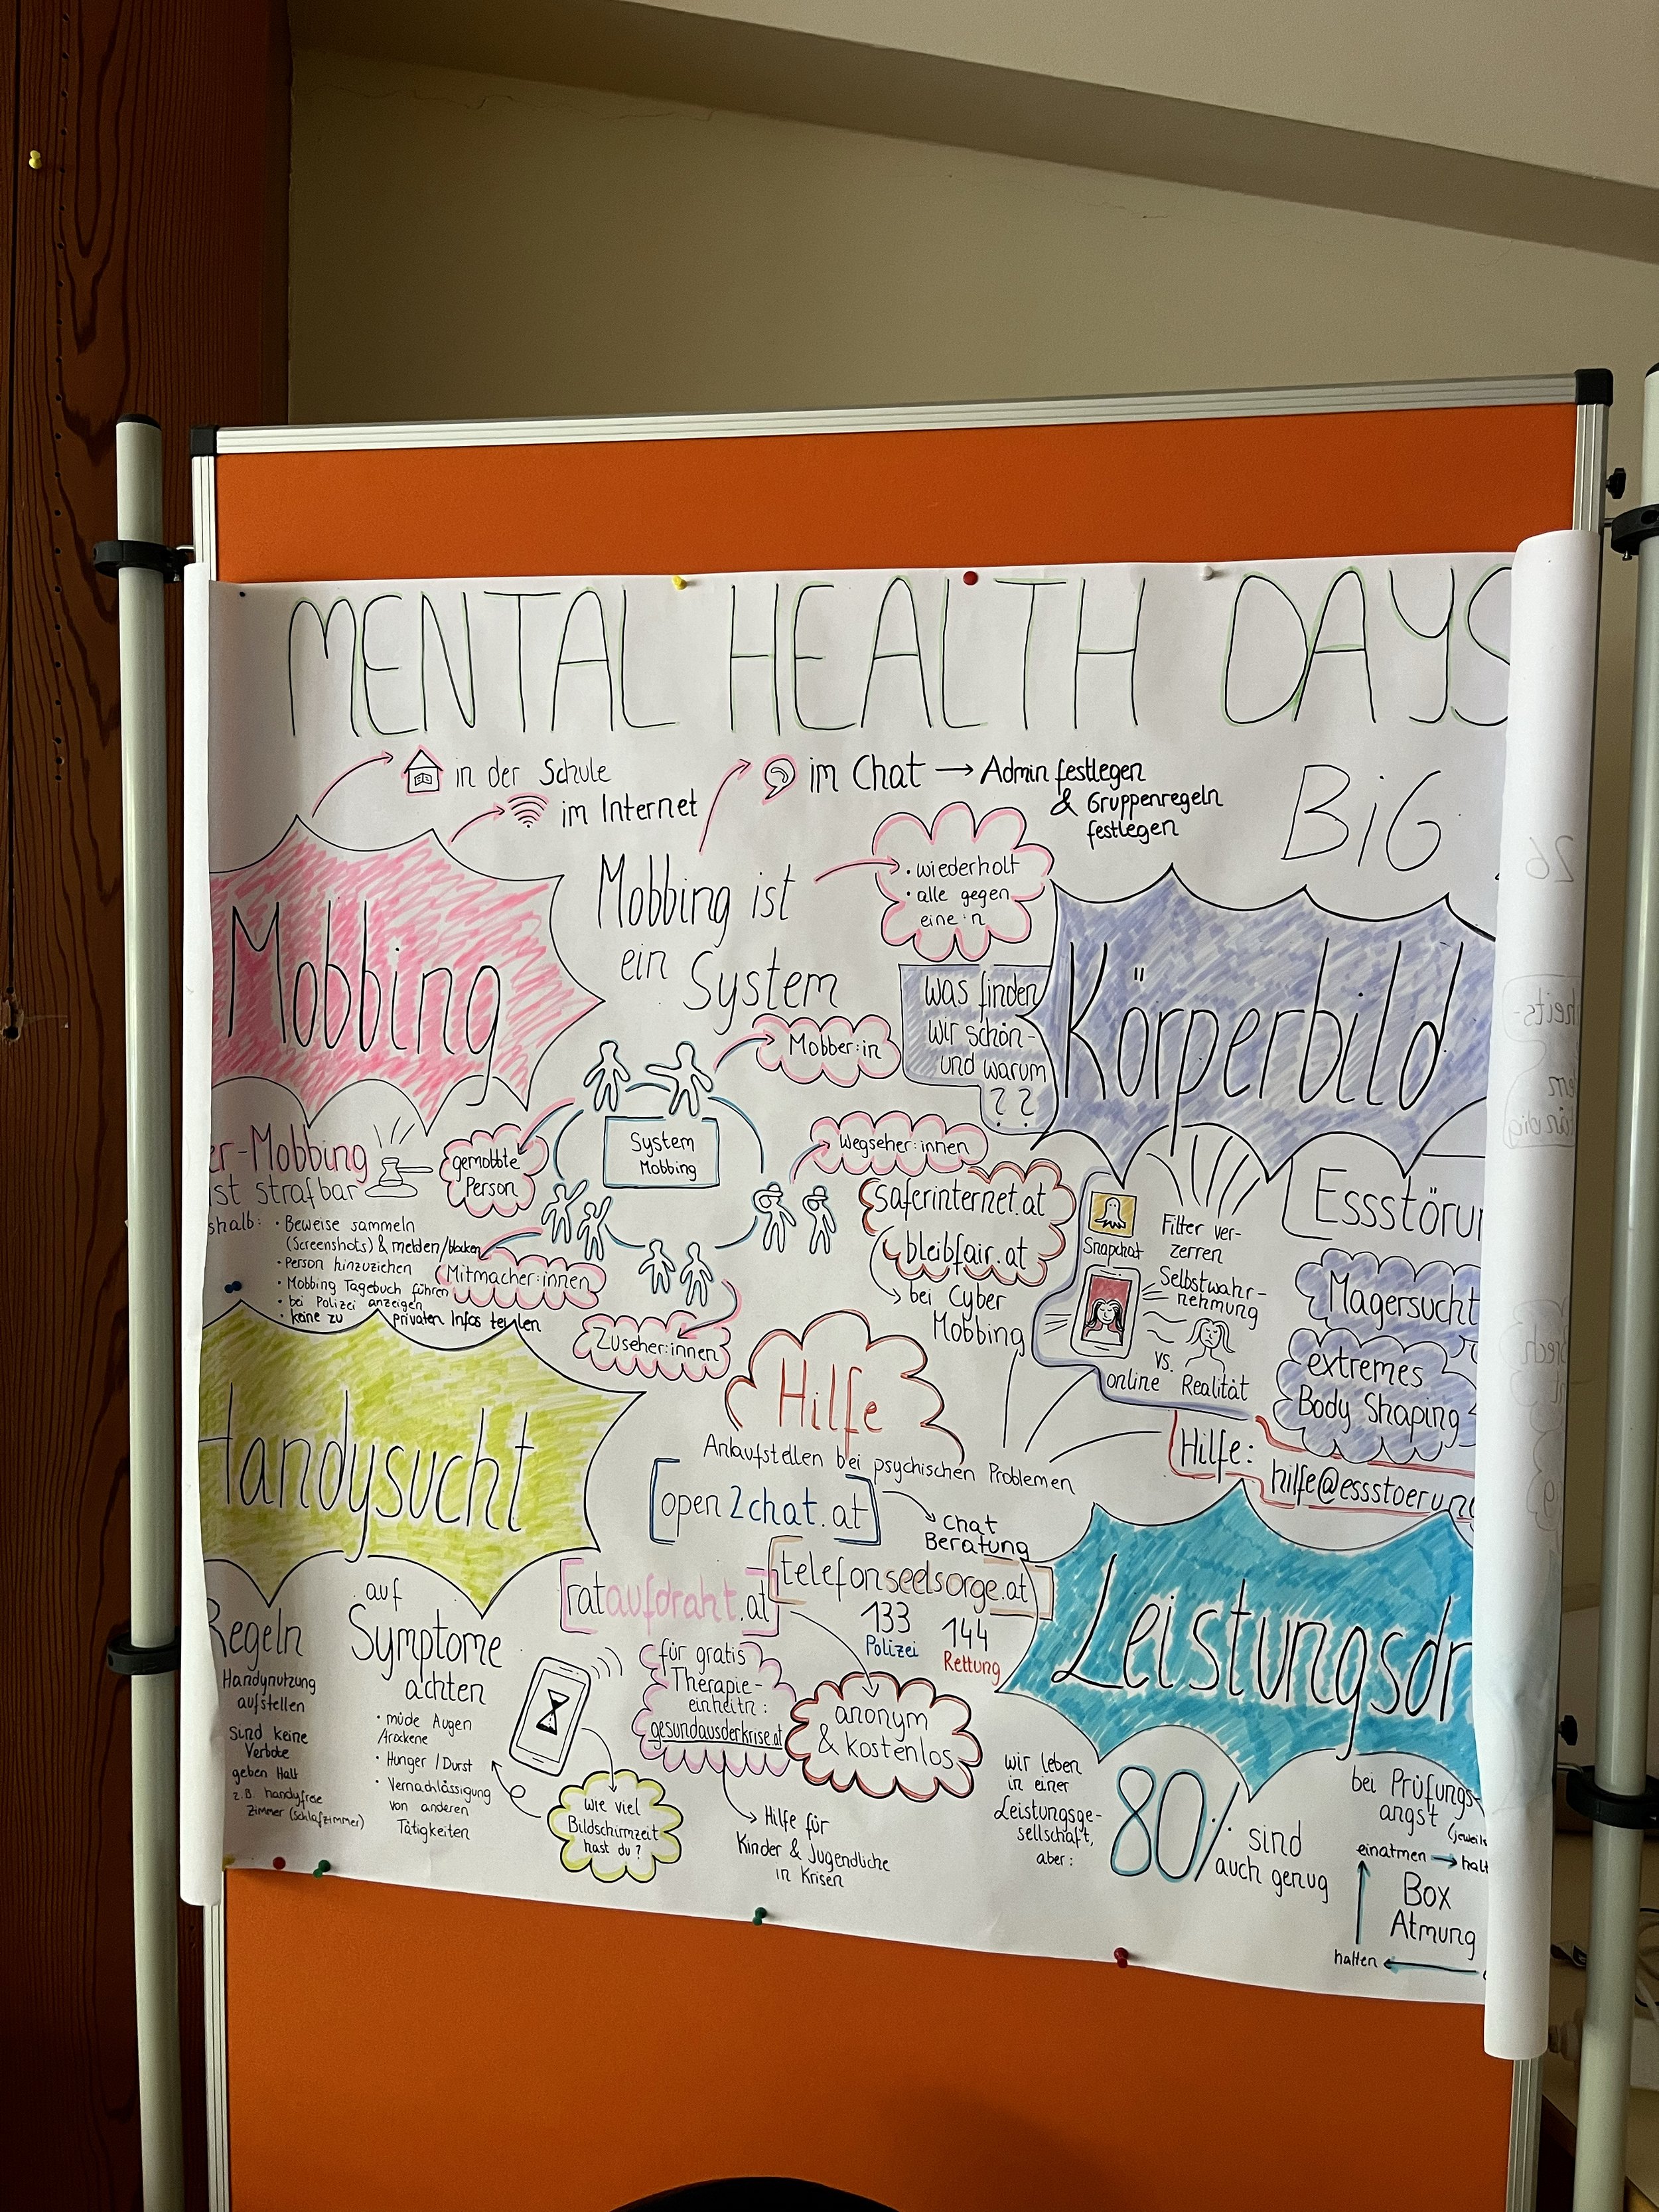 MENTAL HEALTH DAYS
BiG
in der Schule
im Internet
im Chat → Admin festlegen
& Gruppenregeln
festlegen
Mobbing
Mobbing ist
ein System
• wiederholt
• alle gegen
eine:n
Mobber:in
System
Mobbing
gemobbte
Person
Wegseher:innen
Mitmacher:innen
Zuseher:innen
er-Mobbing
ist strafbar
shalb: • Beweise sammeln
(Screenshots) & melden/blocken
• Person hinzuziehen
• Mobbing Tagebuch führen
• bei Polizei anzeigen
• keine zu privaten Infos teilen
saferinternet.at
bleibfair.at
bei Cyber
Mobbing
Körperbild
was finden
wir schön -
und warum
??
Snapchat
Filter ver-
zerren
Selbstwahr-
nehmung
vs.
online Realität
Essstöru
Magersucht
extremes
Body Shaping
Hilfe:
hilfe@essstoerun
Handysucht
Regeln
Handynutzung
aufstellen
Sind keine
Verbote
geben Halt
z.B. handyfreie
Zimmer (Schlafzimmer)
auf
Symptome
achten
• müde Augen
trockene
• Hunger / Durst
• Vernachlässigung
von anderen
Tätigkeiten
wie viel
Bildschirmzeit
hast du?
Hilfe
Anlaufstellen bei psychischen Problemen
open2chat.at
Chat
Beratung
rataufdraht.at
telefonseelsorge.at
133
Polizei
144
Rettung
für gratis
Therapie-
einheitn:
gesundausderkrise.at
anonym
& kostenlos
Hilfe für
Kinder & Jugendliche
in Krisen
Leistungsdr
wir leben
in einer
Leistungsge-
sellschaft,
aber:
80% sind
auch genug
bei Prüfungs-
angst (jeweils
einatmen → halt
Box
Atmung
halten